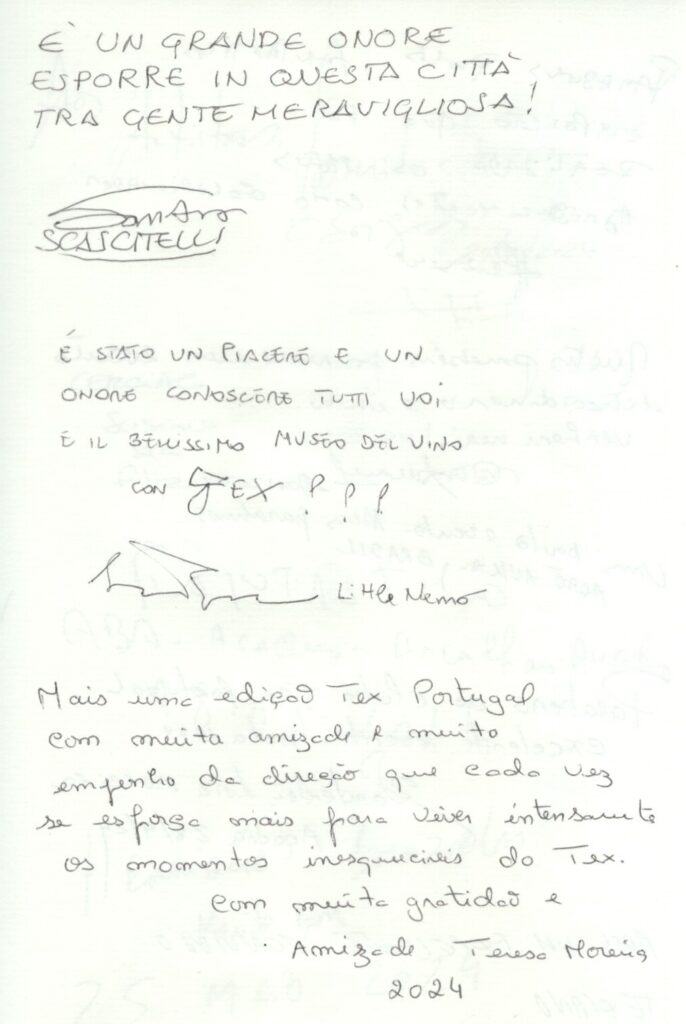 È UN GRANDE ONORE
ESPORRE IN QUESTA CITTÀ
TRA GENTE MERAVIGLIOSA!
Sandro
SCASCITELLI
É STATO UN PIACERE E UN
ONORE CONOSCERE TUTTI VOI
E IL BELLISSIMO MUSEO DEL VINO
CON TEX !!!
Little Nemo
Mais uma edição Tex Portugal
com muita amizade e muito
empenho da direção que cada vez
se esforça mais para viver intensamente
os momentos inesquecíveis do Tex.
Com muita gratidão e
Amizade Teresa Moreira
2024